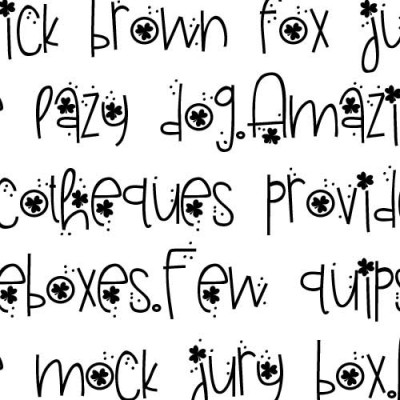 ick brown fox ju
lazy dog.Amazi
cotheques provid
eboxes.Few quips
mock jury box.